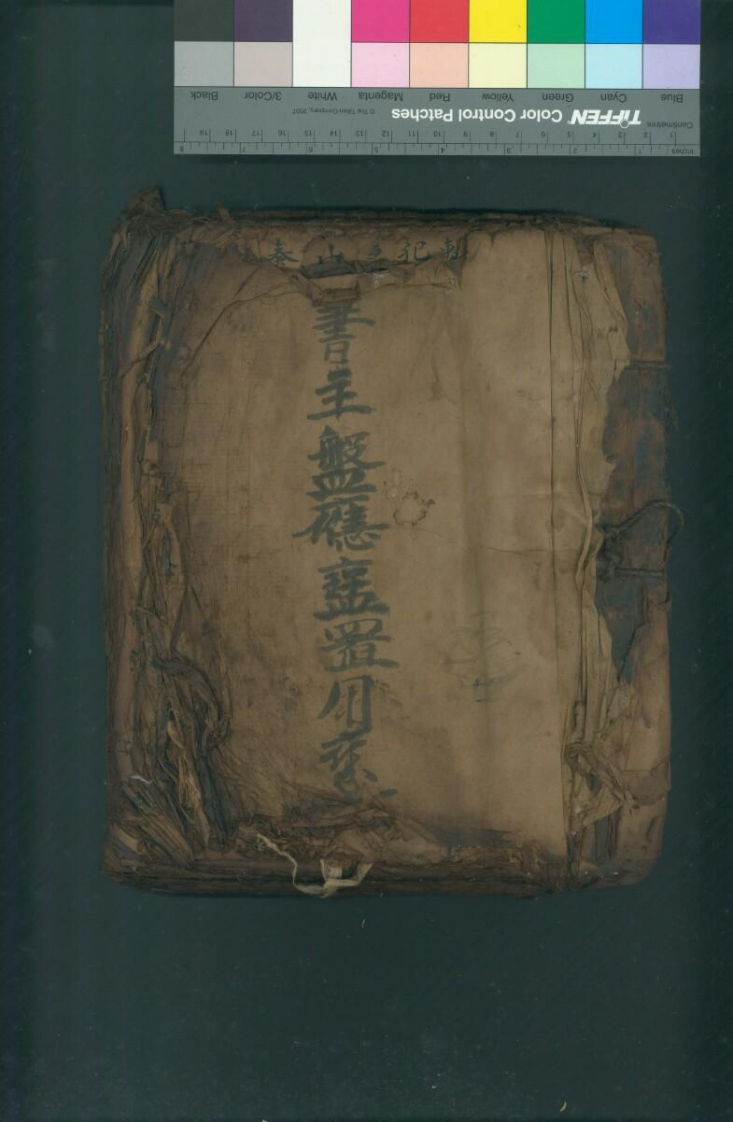 Inches 1 2 3 4 5 6 7 8
Centimetres 1 2 3 4 5 6 7 8 9 10 11 12 13 14 15 16 17 18 19
TIFFEN Color Control Patches © The Tiffen Company, 2007
Blue Cyan Green Yellow Red Magenta White 3/Color Black
山
書主盤應置用